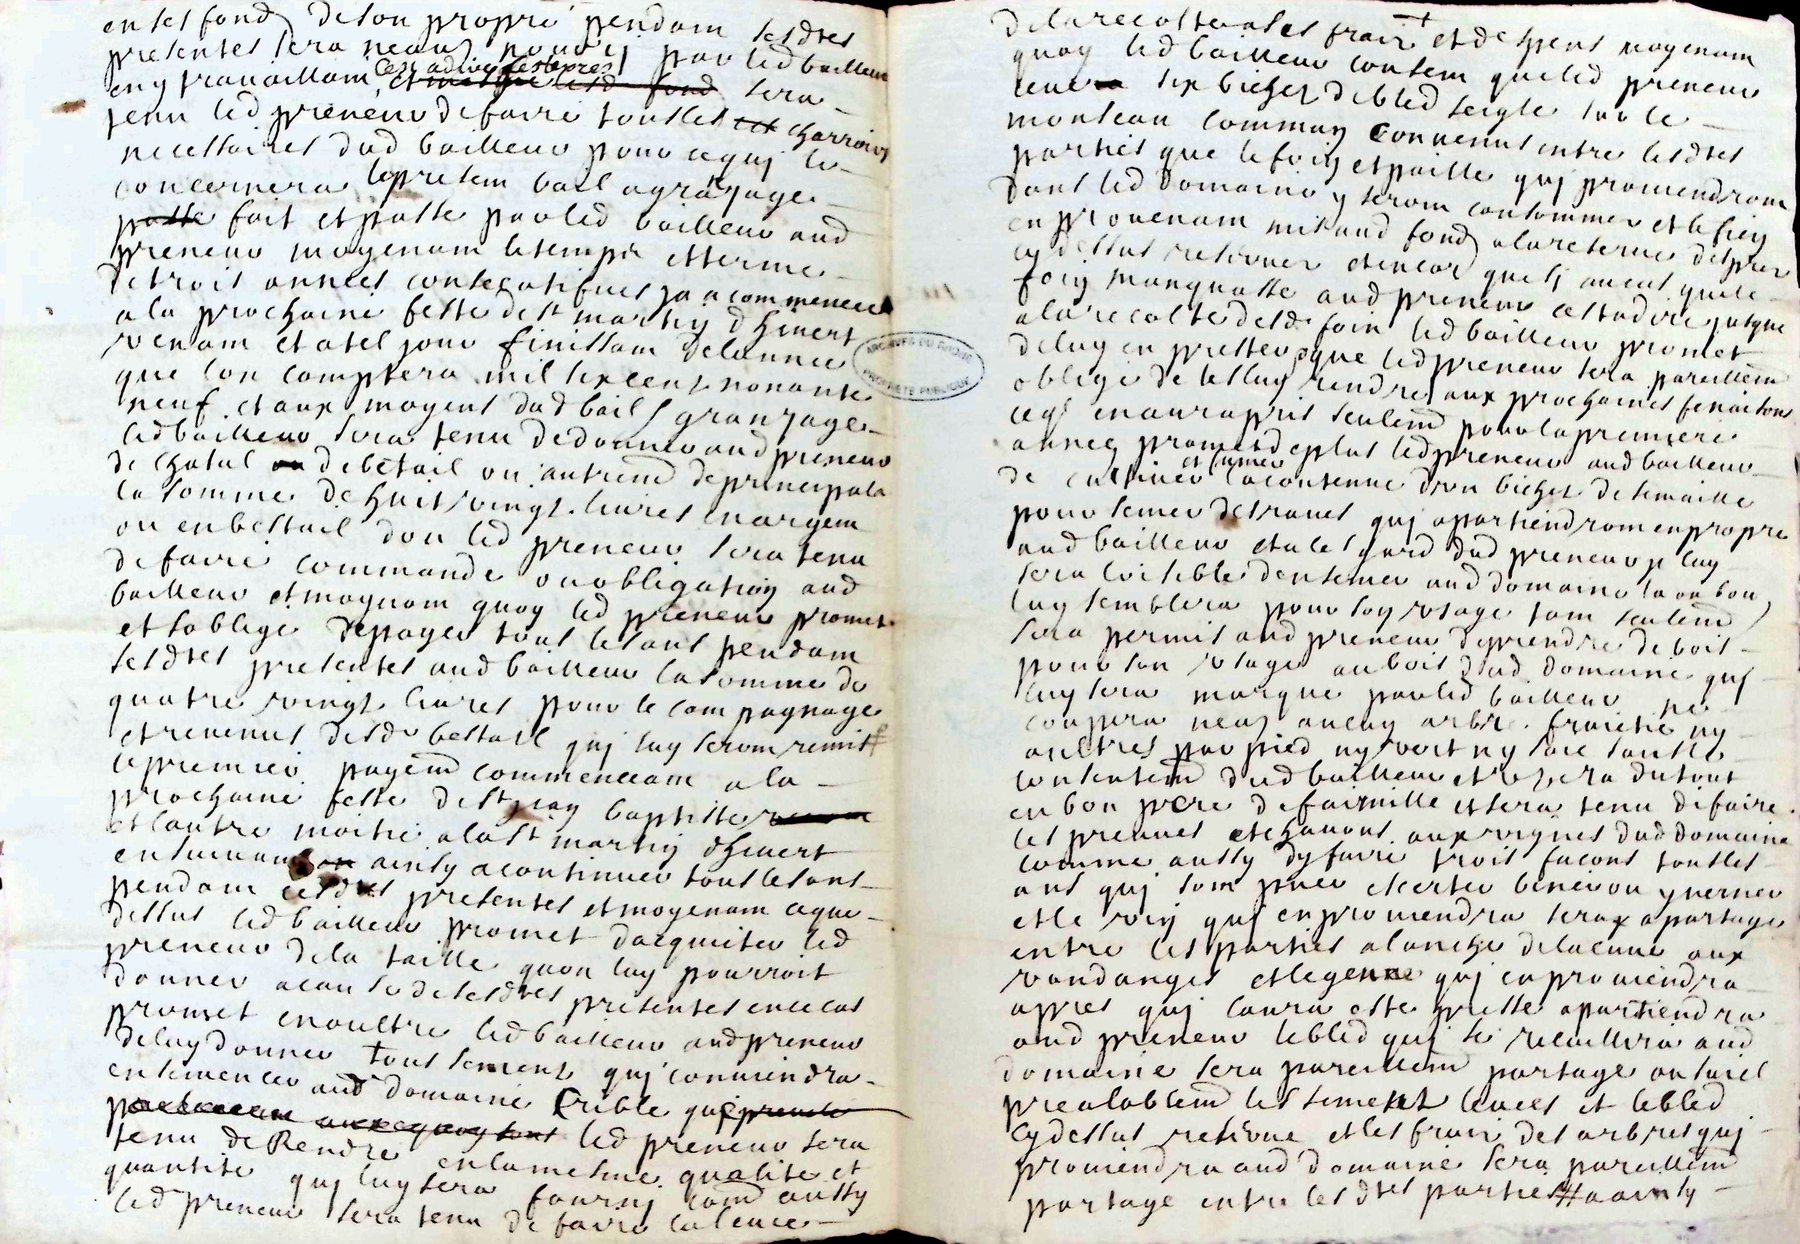 en ses fondz de son propre pendam lesdtes
presentes sera neanz pour y par led bailleur
en y travaillam cest adire les bœufs et mesque lesd fond sera
tenu led preneur de faire tous les charrois
necessaires dud bailleur pour ce quj le
concernera le presem bail agranjage
passe fait et passe par led bailleur aud
preneur moyenam le temps et terme
de trois annees consecutifves ja a commencer
a la prochaine feste de st martin dhivert
venam et a tel jour finissam de lannee
que lon comptera mil six cent nonante
neuf et aux moyens dud bail grangage
led bailleur sera tenu de donner aud preneur
de chatal de betail ou autrem de principala
la somme de huit vingt livres en argem
ou en bestail dou led preneur sera tenu
de faire commande ou obligation aud
bailleur et moyenam quoy led preneur promet
et soblige de payer tous les ans pendam
lesdtes presentes aud bailleur la somme de
quatre vingt livres pour le compagnage
et revenus desd bestail quj luy serom remis
le premier payem commenceam a la
prochaine feste de st jean baptiste
et lautre moitie a la st martin dhivert
ensuivam ainsy a continuer tous les ans
pendam cesdtes presentes et moyenam ce que
dessus led bailleur promet dacquiter led
preneur de la taille quon luy pourroit
donner a cause de cesdtes presentes en ce cas
promet en oultre led bailleur aud preneur
de luy donner tous semens quj conviendra
ensemencer aud domaine crible
led preneur sera
tenu de Rendre en la mesme qualite et
quantite quj luy sera fournj com aussy
led preneur sera tenu de faire la levee
de la recolte a ses frair et despens moyenam
quoy led bailleur consem que led preneur
leve six bichez de bled seigle sur le
monseau commun convenus entre lesdtes
parties que le foin et paille quj proviendrom
dans led domaine y serom consommer et le fien
en provenam mis aud fondz a la reserve des prez
cy dessus reserver et encor que sj au cas que le
foin manquasse aud preneur cest a dire jusque
a la recolte desd foin led bailleur promet
de luy en prester que led preneur sera pareillem
oblige de les luy rendre aux prochaines fenaisons
ce quj en aura pris seulem pour la premiere
annee promet de plus led preneur aud bailleur
de cultiver et fumer la contenue dun bichez de semaille
pour semer des raves quj apartiendrom en propre
aud bailleur et a lesgard dud preneur jl luy
sera loisible den semer aud domaine la ou bon
luy semblera pour son usage tam seulem
sera permis aud preneur dy prendre de bois
pour son usage au bois dud domaine quj
luy sera marque par led bailleur ne
coupera neanz aucuns arbre fruictie ny
aultres par pied ny vert ny sec sans le
consentem dud bailleur et vivra du tout
en bon pere de famille et sera tenu de faire
les preuves et chavons aux vignes dud domaine
comme aussy dy faire trois facons tous les
ans quj som puer
et le vin quj en proviendra sera a partage
entre les parties a lanche de la cuve aux
vandanges et le genne quj en proviendra
appres quj laura este presse apartiendra
aud preneur le bled quj se recuillira aud
domaine sera pareillem partage
prealablem les semens leves et le bled
cy dessus reserve et les fruis des arbres quj
proviendra aud domaine sera pareillem
partage entre lesdtes parties # a ainsy
ARCHIVES DU RHONE
PROPRIETE PUBLIQUE